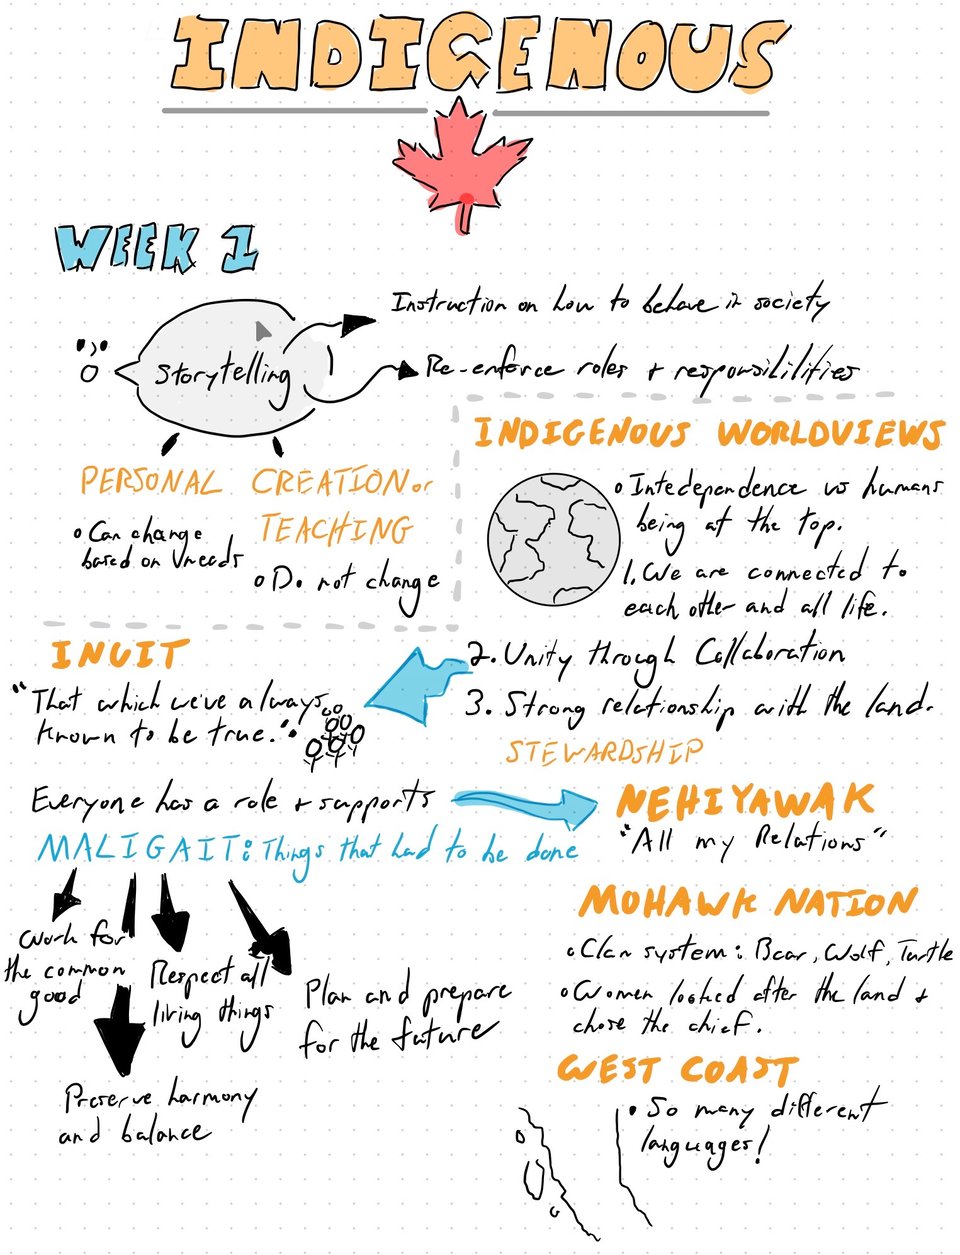 INDIGENOUS
WEEK 1
Storytelling
Instruction on how to behave in society
Re-enforce roles + responsibilities
PERSONAL
• Can change
based on needs
CREATION or
TEACHING
• Do not change
INDIGENOUS WORLDVIEWS
• Intedependence vs humans
being at the top.
1. We are connected to
each other and all life.
2. Unity through Collaboration
3. Strong relationship with the land.
STEWARDSHIP
INUIT
"That which we've always
known to be true."
Everyone has a role + supports
MALIGAIT: Things that had to be done
Work for
the common
good
Respect all
living things
Plan and prepare
for the future
Preserve harmony
and balance
NEHIYAWAK
"All my Relations"
MOHAWK NATION
• Clan system: Bear, Wolf, Turtle
• Women looked after the land +
chose the chief.
WEST COAST
• So many different
languages!